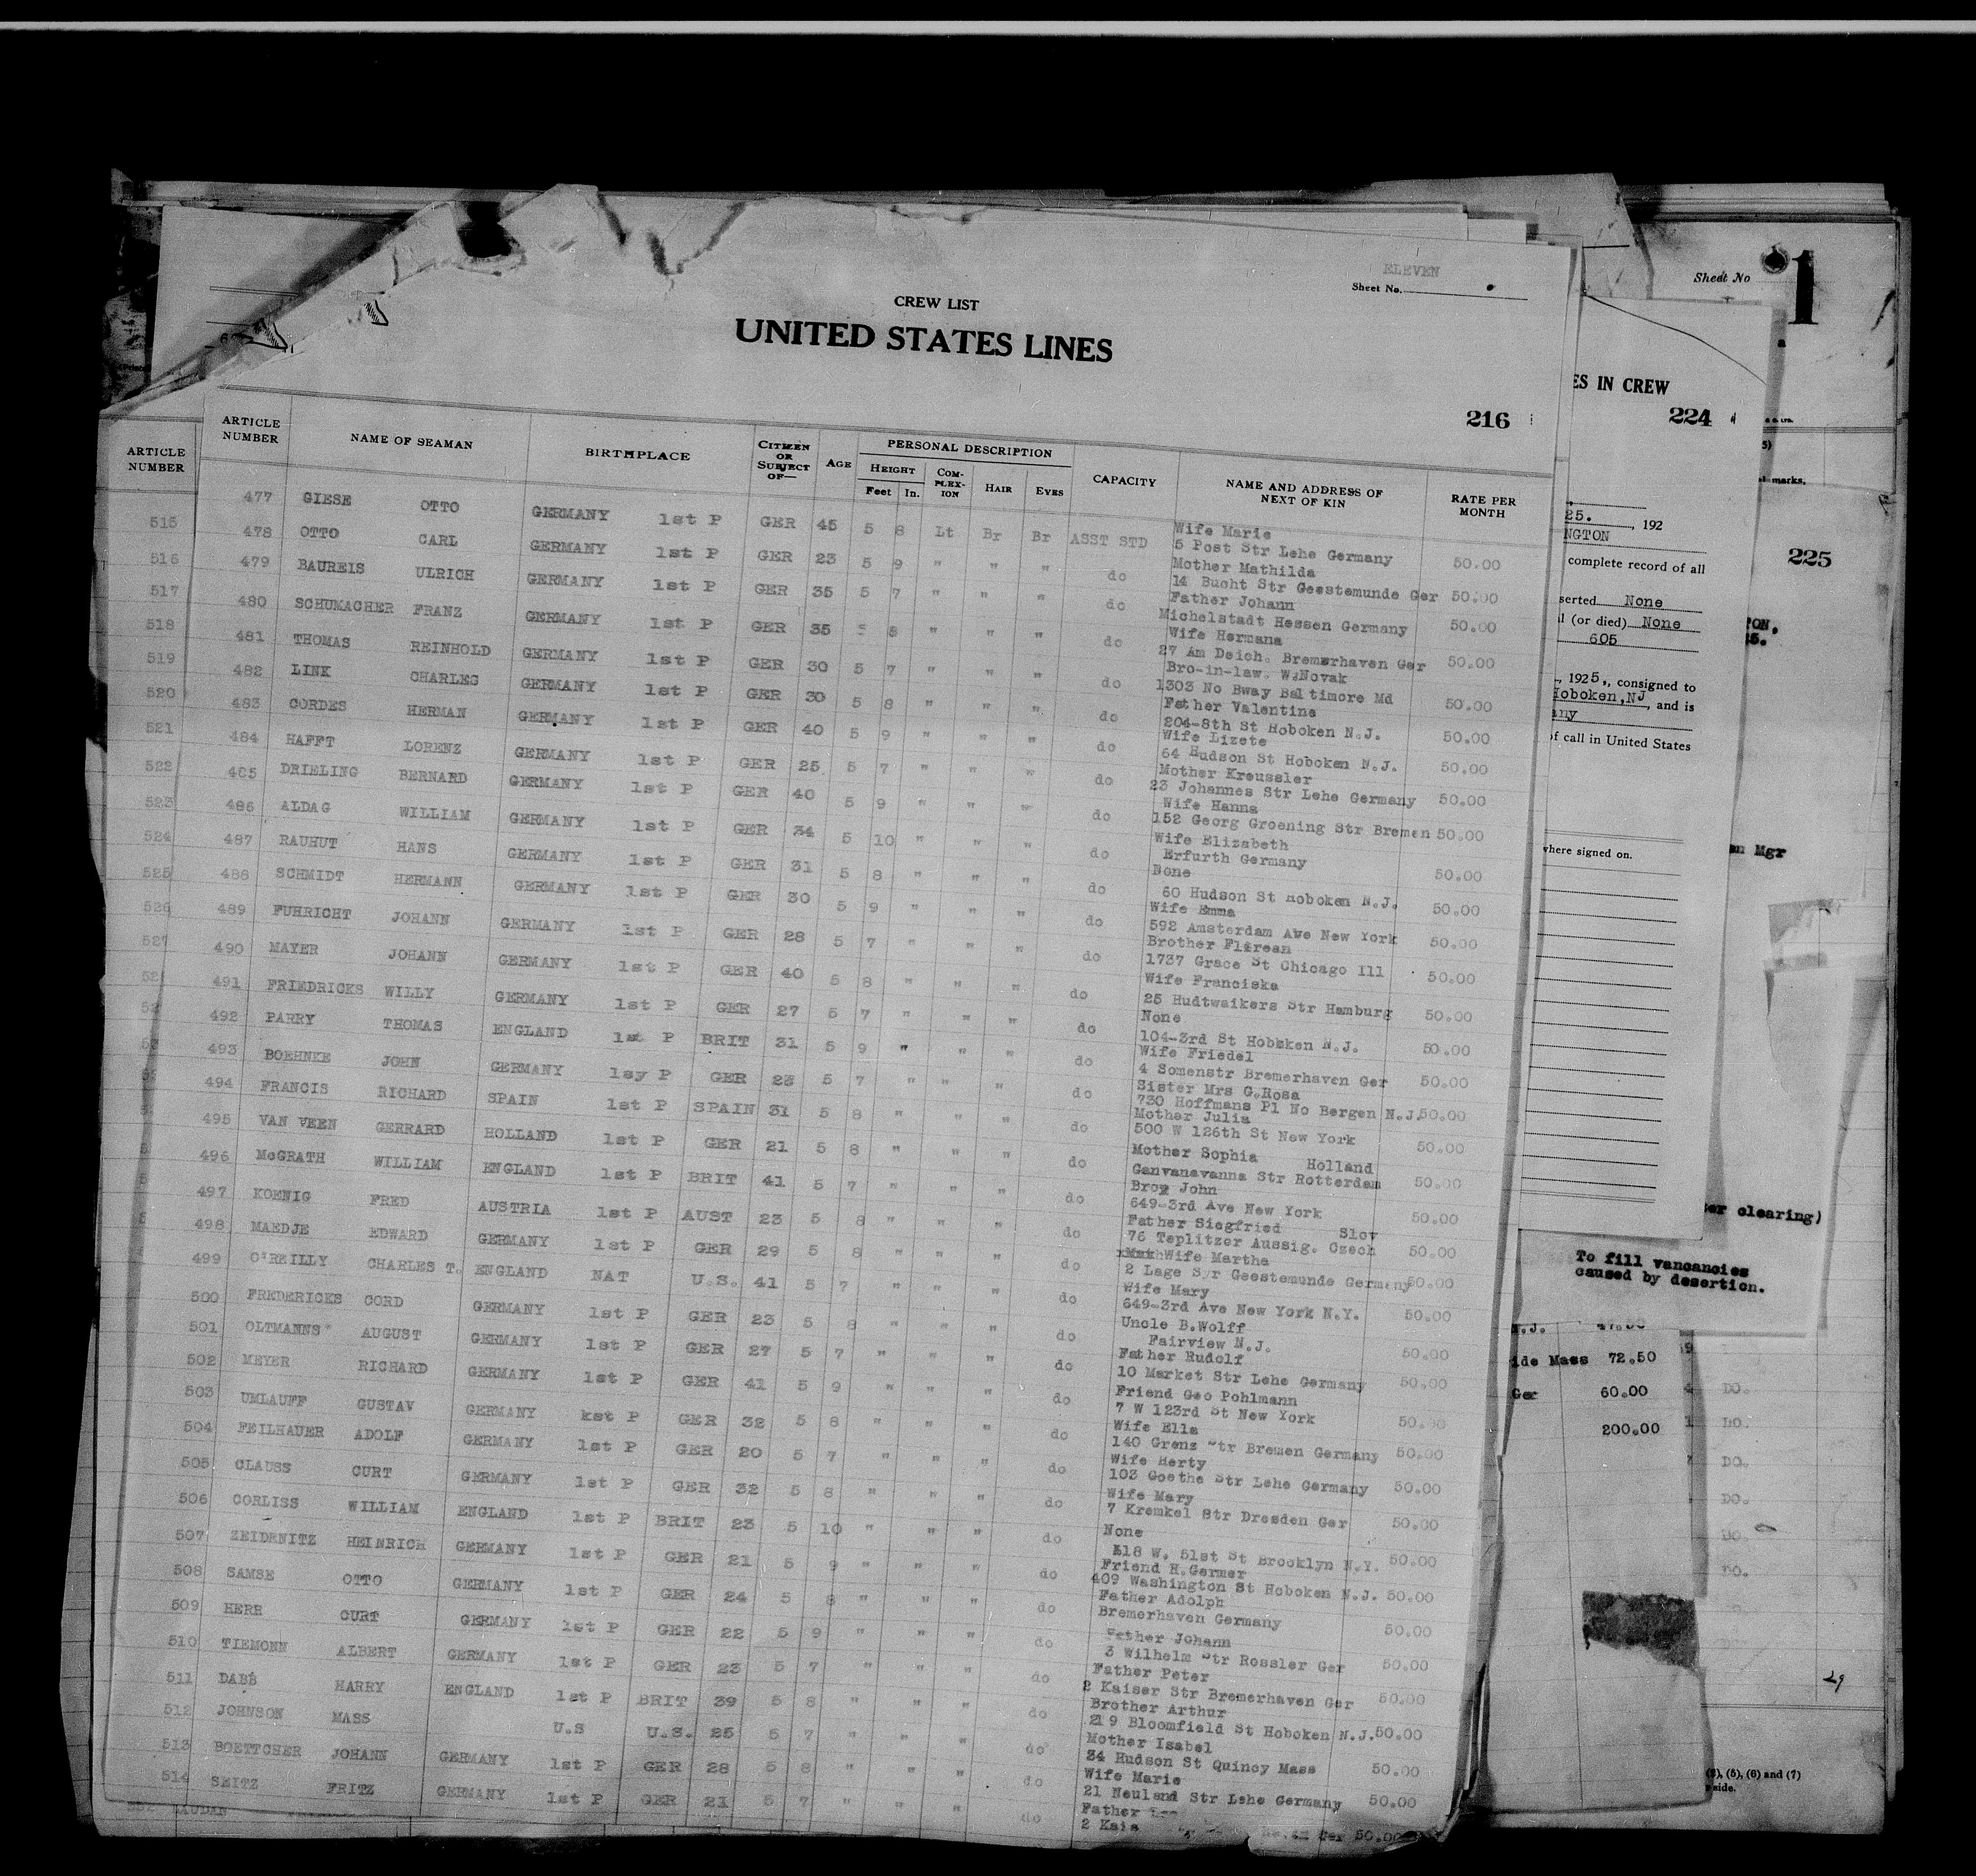 ELEVEN
Sheet No.
CREW LIST
UNITED STATES LINES
216
ARTICLE NUMBER NAME OF SEAMAN BIRTHPLACE CITIZEN OR SUBJECT OF— AGE PERSONAL DESCRIPTION HEIGHT Feet In. COM-PLEX-ION HAIR EYES CAPACITY NAME AND ADDRESS OF NEXT OF KIN RATE PER MONTH
477 GIESE OTTO GERMANY 1st P GER 45 5 8 Lt Br Br ASST STD Wife Marie
5 Post Str Lehe Germany 50.00
478 OTTO CARL GERMANY 1st P GER 23 5 9 " " " do Mother Mathilda
14 Bucht Str Geestemunde Ger 50.00
479 BAUREIS ULRICH GERMANY 1st P GER 35 5 7 " " " do Father Johann
Michelstadt Hessen Germany 50.00
480 SCHUMACHER FRANZ GERMANY 1st P GER 35 5 8 " " " do Wife Hermana
27 Am Deich. Bremerhaven Ger 50.00
481 THOMAS REINHOLD GERMANY 1st P GER 30 5 7 " " " do Bro-in-law. W.Novak
1303 No Bway Baltimore Md 50.00
482 LINK CHARLES GERMANY 1st P GER 30 5 8 " " " do Father Valentine
204-8th St Hoboken N.J. 50.00
483 CORDES HERMAN GERMANY 1st P GER 40 5 9 " " " do Wife Lizete
64 Hudson St Hoboken N.J. 50.00
484 HAFFT LORENZ GERMANY 1st P GER 25 5 7 " " " do Mother Kreussler
23 Johannes Str Lehe Germany 50.00
485 DRIELING BERNARD GERMANY 1st P GER 40 5 9 " " " do Wife Hanna
152 Georg Groening Str Bremen 50.00
486 ALDAG WILLIAM GERMANY 1st P GER 34 5 10 " " " do Wife Elizabeth
Erfurth Germany 50.00
487 RAUHUT HANS GERMANY 1st P GER 31 5 8 " " " do None
60 Hudson St Hoboken N.J. 50.00
488 SCHMIDT HERMANN GERMANY 1st P GER 30 5 9 " " " do Wife Emma
592 Amsterdam Ave New York 50.00
489 FUHRICHT JOHANN GERMANY 1st P GER 28 5 7 " " " do Brother Florean
1737 Grace St Chicago Ill 50.00
490 MAYER JOHANN GERMANY 1st P GER 40 5 8 " " " do Wife Franciska
25 Hudtwalkers Str Hamburg 50.00
491 FRIEDRICKS WILLY GERMANY 1st P GER 27 5 7 " " " do None
104-3rd St Hoboken N.J. 50.00
492 PARRY THOMAS ENGLAND 1st P BRIT 31 5 9 " " " do Wife Friedel
4 Somenstr Bremerhaven Ger 50.00
493 BOEHNKE JOHN GERMANY 1sy P GER 23 5 7 " " " do Sister Mrs G.Rosa
730 Hoffmans Pl No Bergen N.J. 50.00
494 FRANCIS RICHARD SPAIN 1st P SPAIN 31 5 8 " " " do Mother Julia
500 W 126th St New York 50.00
495 VAN VEEN GERRARD HOLLAND 1st P GER 21 5 8 " " " do Mother Sophia Holland
Ganvanavanna Str Rotterdam 50.00
496 McGRATH WILLIAM ENGLAND 1st P BRIT 41 5 7 " " " do John
649-3rd Ave New York 50.00
497 KOENIG FRED AUSTRIA 1st P AUST 23 5 8 " " " do Father Siegfried Slov
76 Teplitzer Aussig. Czech 50.00
498 MAEDJE EDWARD GERMANY 1st P GER 29 5 8 " " " do Wife Martha
2 Lage Syr Geestemunde Germany 50.00
499 O'REILLY CHARLES T. ENGLAND NAT U.S. 41 5 7 " " " do Wife Mary
649-3rd Ave New York N.Y. 50.00
500 FREDERICKS CORD GERMANY 1st P GER 23 5 8 " " " do Uncle B.Wolff
Fairview N.J. 50.00
501 OLTMANNS AUGUST GERMANY 1st P GER 27 5 7 " " " do Father Rudolf
10 Market Str Lehe Germany 50.00
502 MEYER RICHARD GERMANY 1st P GER 41 5 9 " " " do Friend Geo Pohlmann
7 W 123rd St New York 50.00
503 UMLAUFF GUSTAV GERMANY kst P GER 32 5 8 " " " do Wife Ella
140 Grenz Str Bremen Germany 50.00
504 FEILHAUER ADOLF GERMANY 1st P GER 20 5 7 " " " do Wife Herty
103 Goethe Str Lehe Germany 50.00
505 CLAUSS CURT GERMANY 1st P GER 32 5 8 " " " do Wife Mary
7 Kremkel Str Dresden Ger 50.00
506 CORLISS WILLIAM ENGLAND 1st P BRIT 23 5 10 " " " do None
518 W. 51st St Brooklyn N.Y. 50.00
507 ZEIDRNITZ HEINRICH GERMANY 1st P GER 21 5 9 " " " do Friend H.Germer
409 Washington St Hoboken N.J. 50.00
508 SAMSE OTTO GERMANY 1st P GER 24 5 8 " " " do Father Adolph
Bremerhaven Germany 50.00
509 HERR CURT GERMANY 1st P GER 22 5 9 " " " do Father Johann
3 Wilhelm Str Rossler Ger 50.00
510 TIEMONN ALBERT GERMANY 1st P GER 23 5 7 " " " do Father Peter
2 Kaiser Str Bremerhaven Ger 50.00
511 DABB HARRY ENGLAND 1st P BRIT 39 5 8 " " " do Brother Arthur
219 Bloomfield St Hoboken N.J. 50.00
512 JOHNSON MASS U.S U.S. 25 5 7 " " " do Mother Isabel
34 Hudson St Quincy Mass 50.00
513 BOETTCHER JOHANN GERMANY 1st P GER 28 5 8 " " " do Wife Marie
21 Neuland Str Lehe Germany 50.00
514 SEITZ FRITZ GERMANY 1st P GER 21 5 7 " " " do Father
2 Kais Ger 50.00
ARTICLE NUMBER
515
516
517
518
519
520
521
522
523
524
525
526
527
Sheet No 1
ES IN CREW
224
25. , 192
NGTON
complete record of all
serted None
l (or died) None
605
, 1925., consigned to
Hoboken,NJ, and is
any
of call in United States
where signed on.
marks.
225
an Mgr
er clearing)
To fill vancancies
caused by desertion.
N.J. 47.50
ide Mass 72.50
Ger 60.00
200.00
DO.
DO.
DO.
DO.
DO.
DO.
29
(3), (5), (6) and (7)
side.